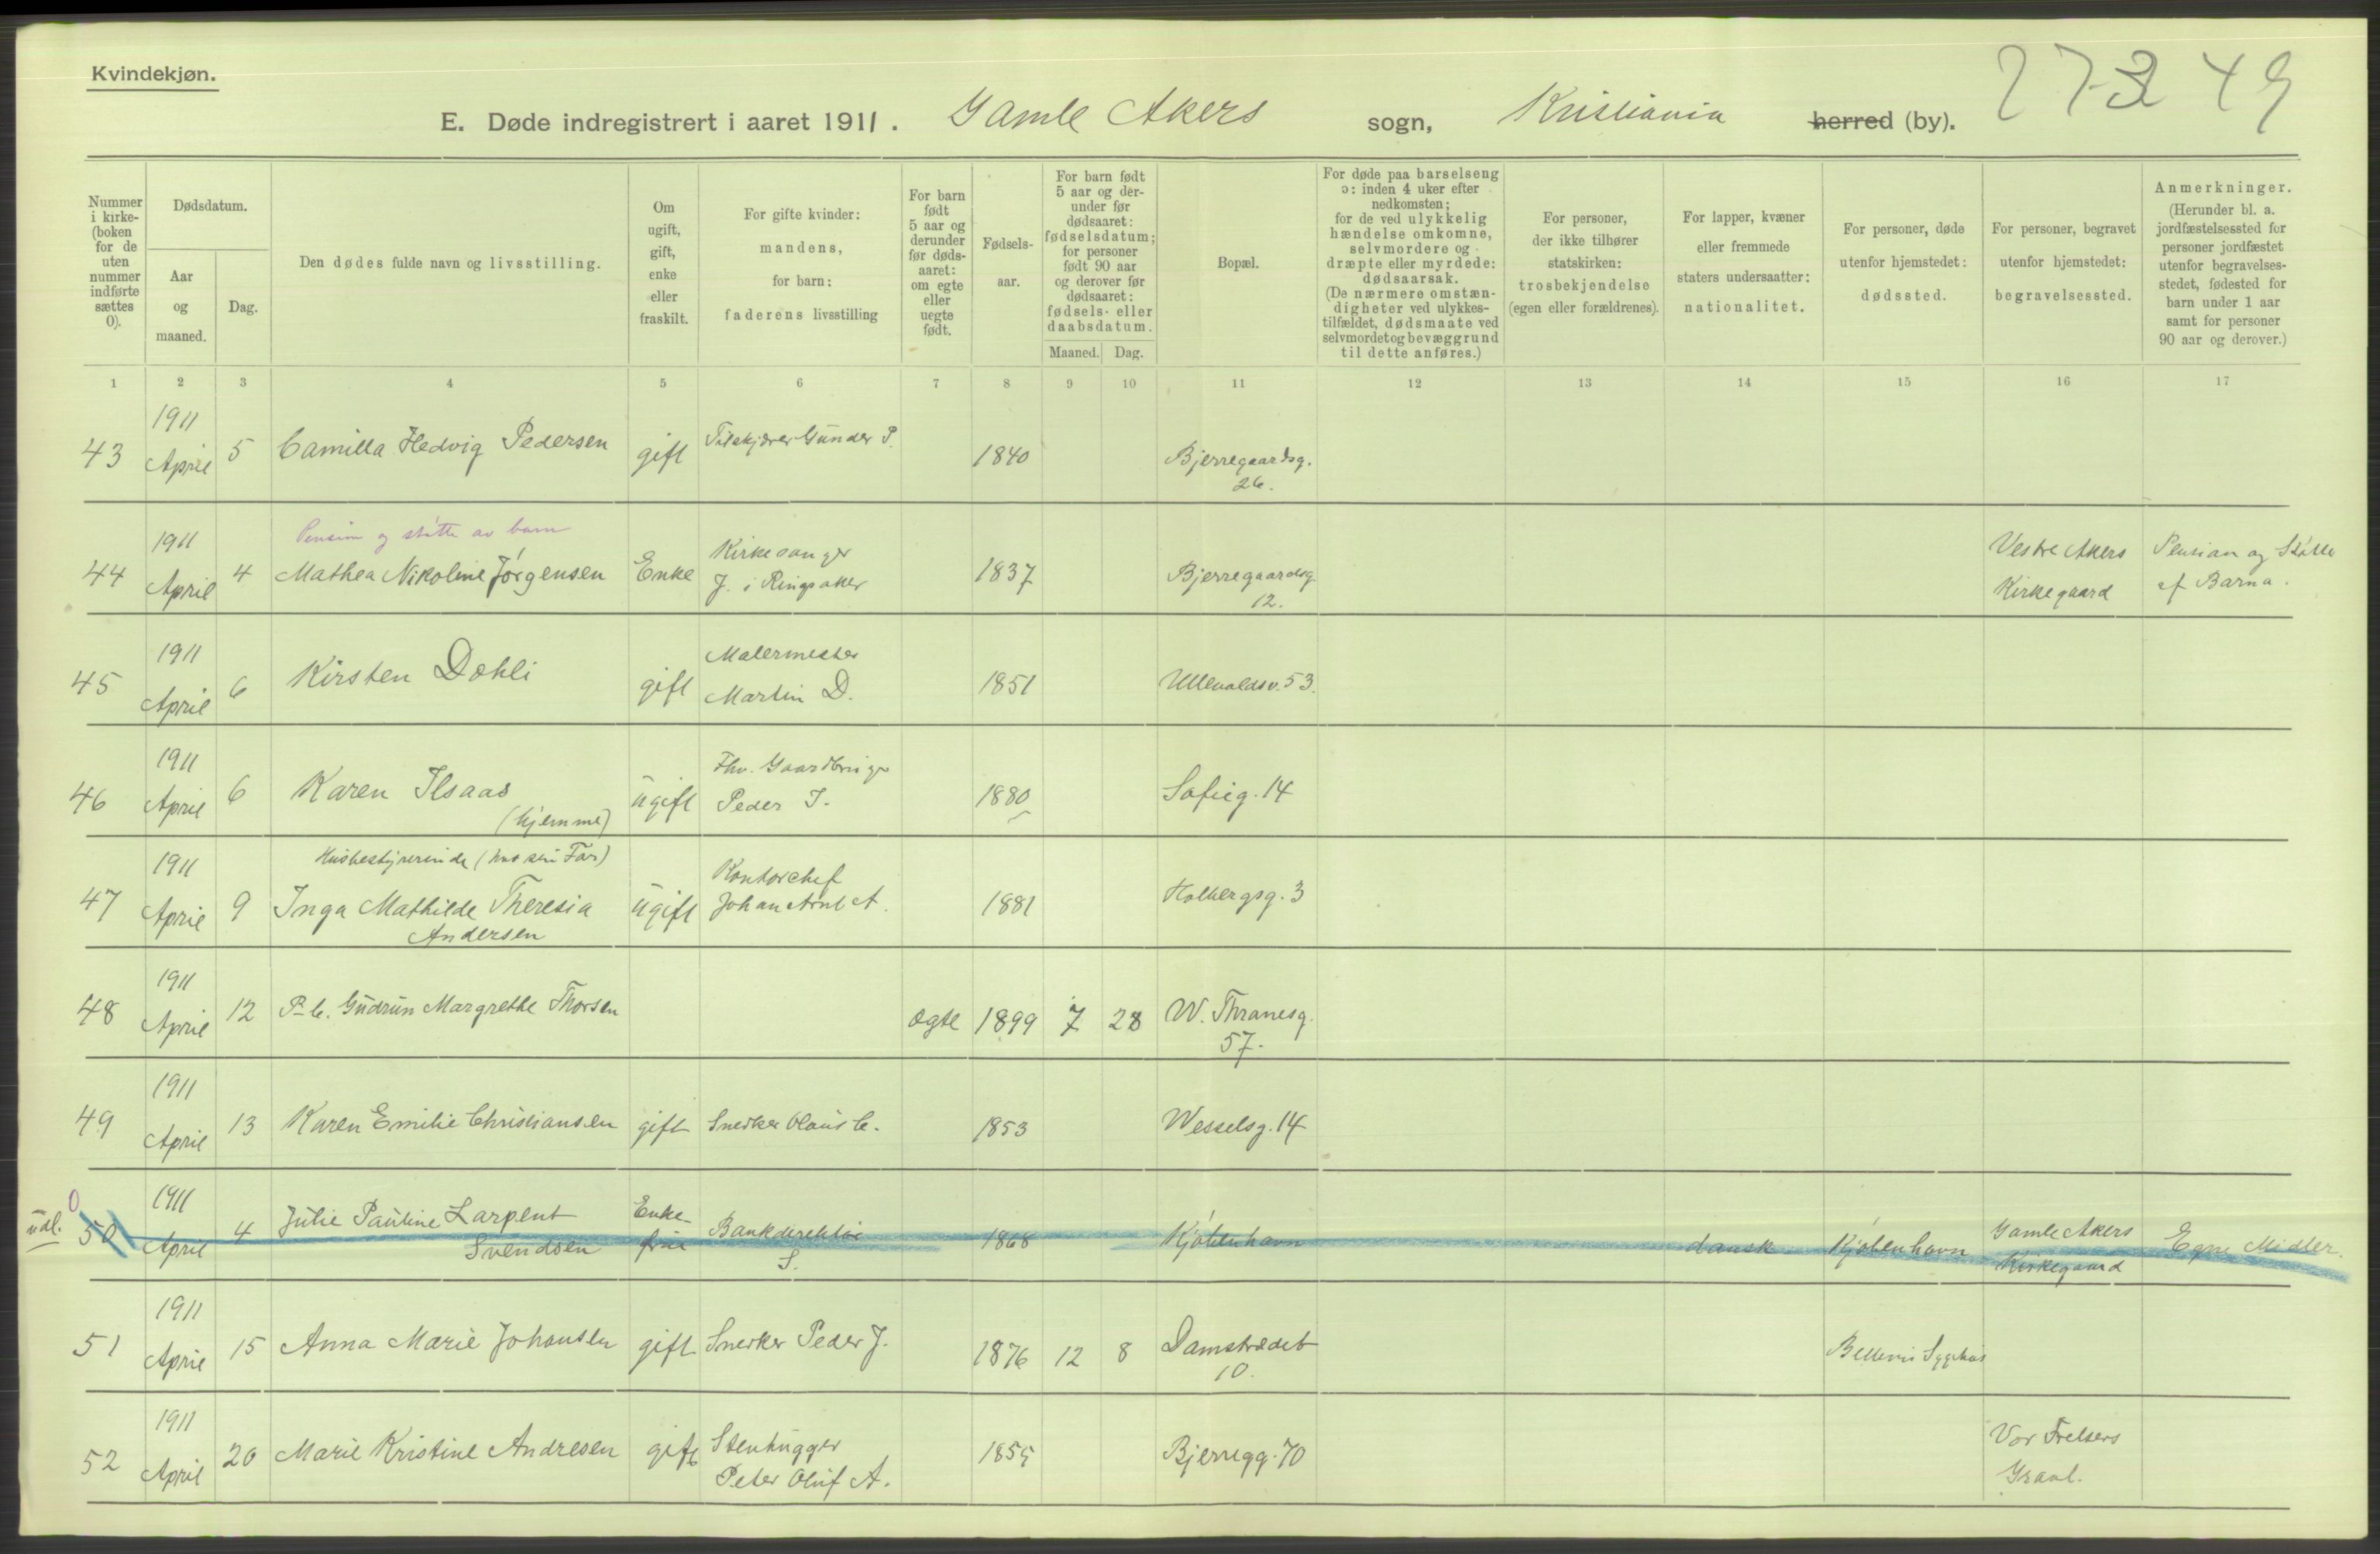 Kvindekjøn.
E. Døde indregistrert i aaret 1911. Gamle Akers sogn, Kristiania herred (by).
49
Nummer i kirke- (boken for de uten nummer indførte sættes 0).
Dødsdatum.
Aar og maaned.
Dag.
Den dødes fulde navn og livsstilling.
Om ugift, gift, enke eller fraskilt.
For gifte kvinder: mandens, for barn: faderens livsstilling
For barn født 5 aar og derunder før døds- aaret: om egte eller uegte født.
Fødsels- aar.
For barn født 5 aar og der- under før dødsaaret: fødselsdatum; for personer født 90 aar og derover før dødsaaret: fødsels- eller daabsdatum.
Maaned. Dag.
Bopæl.
For døde paa barselseng ɔ: inden 4 uker efter nedkomsten; for de ved ulykkelig hændelse omkomne, selvmordere og dræpte eller myrdede: dødsaarsak. (De nærmere omstæn- digheter ved ulykkes- tilfældet, dødsmaate ved selvmordet og bevæggrund til dette anføres.)
For personer, der ikke tilhører statskirken: trosbekjendelse (egen eller forældrenes).
For lapper, kvæner eller fremmede staters undersaatter: nationalitet.
For personer, døde utenfor hjemstedet: dødssted.
For personer, begravet utenfor hjemstedet: begravelsessted.
Anmerkninger. (Herunder bl. a. jordfæstelsessted for personer jordfæstet utenfor begravelses- stedet, fødested for barn under 1 aar samt for personer 90 aar og derover.)
1 2 3 4 5 6 7 8 9 10 11 12 13 14 15 16 17
43 1911 April 5 Camilla Hedvig Pedersen gift Gunder P. 1840 Bjerregaardsg. 26.
Pension og støtte av barn
44 1911 April 4 Mathea Nikoline Jörgensen Enke Kirkesanger J. i Ringsaker 1837 Bjerregaardsg. 12. Vestre Akers Kirkegaard Pension og Stötte af Barna.
45 1911 April 6 Kirsten Dæhli gift Malermester Martin D. 1851 Ullevoldsv. 53.
46 1911 April 6 Karen Ilsaas (hjemme) ugift Fhv. Gaardbruger Peder I. 1880 Sofieg. 14
Husbestyrerinde (hos sin Far)
47 1911 April 9 Inga Mathilde Theresia Andersen ugift Kontorchef Johan Arnt A. 1881 Holbergsg. 3
48 1911 April 12 P. b. Gudrun Margrethe Thorsen ægte 1899 7 28 W. Thranesg. 57.
49 1911 April 13 Karen Emilie Christiansen gift Snedker Olaus C. 1853 Wesselsg. 14
0
udl. 50 1911 April 4 Julie Pauline Larpent Svendsen Enke- frue Bankdirektör S. 1868 Kjöbenhavn dansk Kjöbenhavn Gamle Akers Kirkegaard Egne Midler.
51 1911 April 15 Anna Marie Johansen gift Snedker Peder J. 1876 12 8 Damstrædet 10. Bellevue Sygehus
52 1911 April 20 Marie Kristine Andresen gift Stenhugger Peter Oluf A. 1855 Bjerregg. 70 Vor Frelsers Gravl.